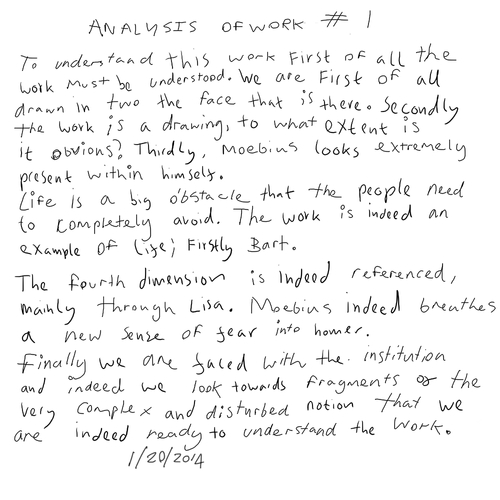 ANALYSIS OF WORK # 1
To understand this work First of all the
work must be understood. We are First of all
drawn in two the face that is there. Secondly
the work is a drawing, to what extent is
it obvious? Thirdly, Moebius looks extremely
present within himself.
Life is a big obstacle that the people need
to completely avoid. The work is indeed an
example of life; Firstly Bart.
The fourth dimension is indeed referenced,
mainly through Lisa. Moebius indeed breathes
a new sense of fear into homer.
Finally we are faced with the institution
and indeed we look towards fragments of the
very complex and disturbed notion that we
are indeed ready to understand the work.
1/20/2014